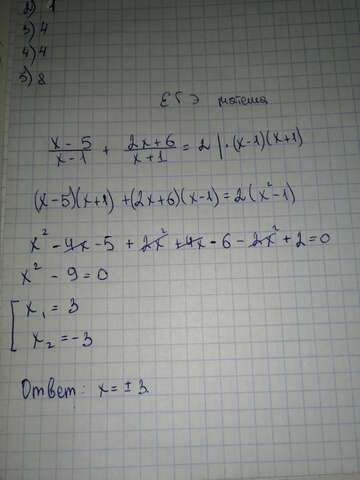 2) 1
3) 4
4) 4
5) 8
ЕГЭ матеша
x - 5 / x - 1 + 2x + 6 / x + 1 = 2 | · (x-1)(x+1)
(x-5)(x+1) + (2x+6)(x-1) = 2(x² - 1)
x² - 4x - 5 + 2x² + 4x - 6 - 2x² + 2 = 0
x² - 9 = 0
[ x₁ = 3
x₂ = -3
Ответ: x = ± 3.